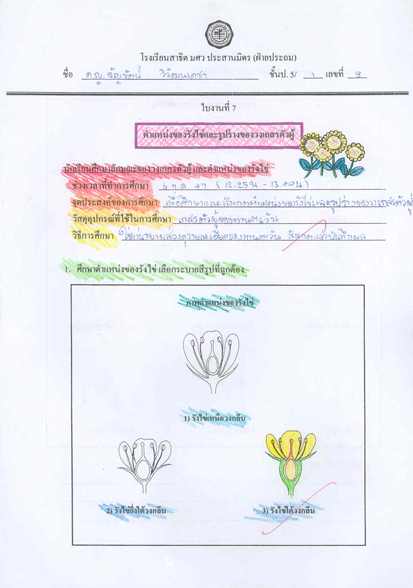 โรงเรียนสาธิต มศว ประสานมิตร (ฝ่ายประถม)
ชื่อ ด.ญ. ชั้นป. 5/ 1 เลขที่ 9
ใบงานที่ 7
ตำแหน่งของรังไข่และรูปร่างของวงเกสรตัวผู้
นักเรียนศึกษาลักษณะของวงเกสรตัวผู้ และตำแหน่งของรังไข่
ช่วงเวลาที่ทำการศึกษา 6 ก.ค. 47 (13.25น - 13.00น)
จุดประสงค์ของการศึกษา เพื่อศึกษาและสังเกตตำแหน่งของรังไข่และรูปร่างของวงเกสรตัวผู้
วัสดุอุปกรณ์ที่ใช้ในการศึกษา เกสรตัวผู้ของทานตะวัน
วิธีการศึกษา ใช้แว่นขยายส่องดูรายละเอียดของทานตะวัน สังเกตแล้วบันทึกผล
1. ศึกษาตำแหน่งของรังไข่ เลือกระบายสีรูปที่ถูกต้อง
ภาพตำแหน่งของรังไข่
1) รังไข่เหนือวงกลีบ
2) รังไข่กึ่งใต้วงกลีบ
3) รังไข่ใต้วงกลีบ